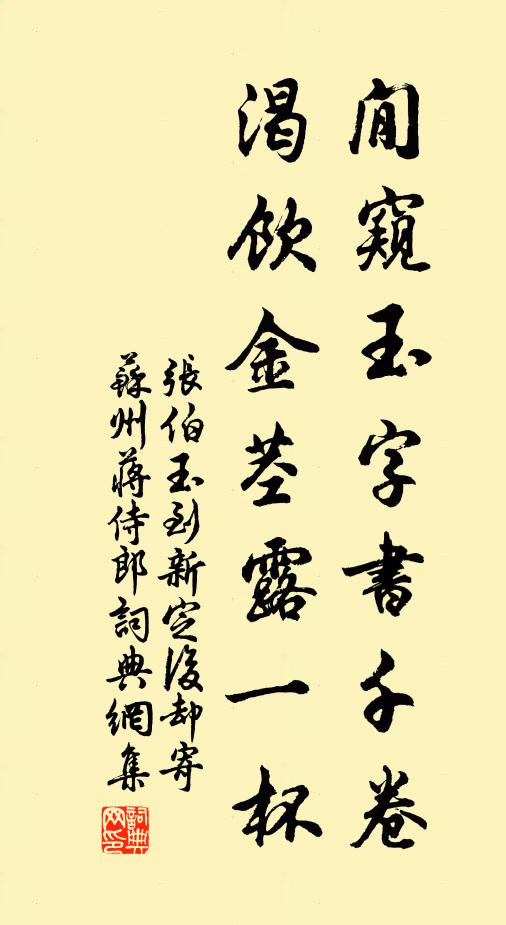 閒窺玉字書千卷
渴飲金莖露一杯
張伯玉到新定後却寄
蘇州蔣侍郎詞典網集
詞典
網印